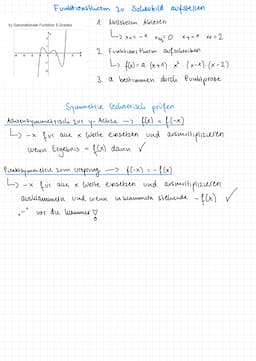 Funktionsterm zu Schaubild aufstellen
b) Ganzrationale Funktion 5.Grades
1. Nullstellen Ablesen
↳ x₁ = -1 x₂,₃ = 0 x₄ = 1 x₅ = 2
2. Funktionsterm aufschreiben
↳ f(x) = a · (x+1) · x² · (x-1) · (x-2)
3. a bestimmen durch Punktprobe
Symmetrie rechnerisch prüfen
Achsensymmetrisch zur y-Achse → f(x) = f(-x)
↳ -x für alle x Werte einsetzen und ausmultiplizieren
wenn Ergebnis = f(x) dann ✓
Punktsymmetrie zum Ursprung → f(-x) = -f(x)
↳ -x für alle x Werte einsetzen und ausmultiplizieren
ausklammern und wenn in Klammern stehende -f(x) ✓
„-“ vor die Klammer!